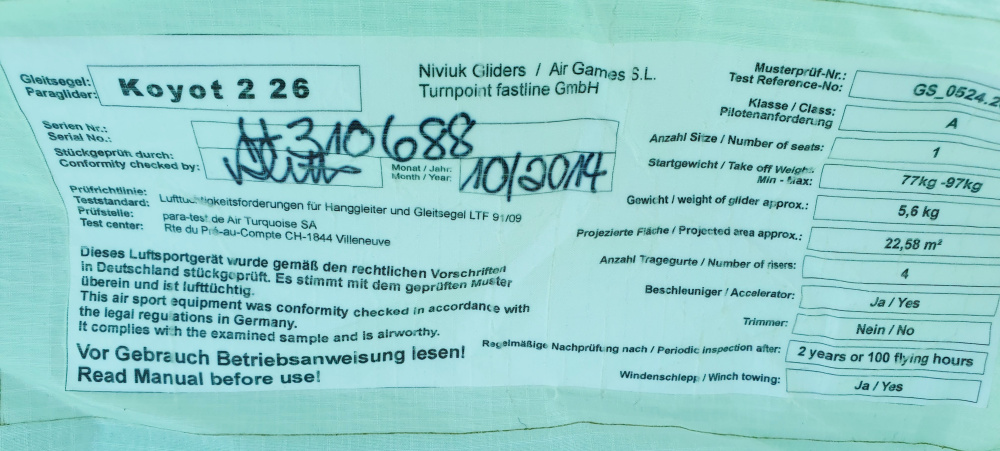 Gleitsegel:
Paraglider:
Koyot 2 26
Niviuk Gliders / Air Games S.L.
Turnpoint fastline GmbH
Serien Nr.:
Serial No.:
310688
Stückgeprüft durch:
Conformity checked by:
Monat / Jahr:
Month / Year:
10/2014
Prüfrichtlinie:
Teststandard:
Lufttüchtigkeitsforderungen für Hanggleiter und Gleitsegel LTF 91/09
Prüfstelle:
Test center:
para-test de Air Turquoise SA
Rte du Pré-au-Compte CH-1844 Villeneuve
Dieses Luftsportgerät wurde gemäß den rechtlichen Vorschriften
in Deutschland stückgeprüft. Es stimmt mit dem geprüften Muster
überein und ist lufttüchtig.
This air sport equipment was conformity checked in accordance with
the legal regulations in Germany.
It complies with the examined sample and is airworthy.
Vor Gebrauch Betriebsanweisung lesen!
Read Manual before use!
Musterprüf-Nr.:
Test Reference-No:
GS_0524.2
Klasse / Class:
Pilotenanforderung
A
Anzahl Sitze / Number of seats:
1
Startgewicht / Take off Weight
Min - Max:
77kg -97kg
Gewicht / weight of glider approx.:
5,6 kg
Projezierte Fläche / Projected area approx.:
22,58 m²
Anzahl Tragegurte / Number of risers:
4
Beschleuniger / Accelerator:
Ja / Yes
Trimmer:
Nein / No
Regelmäßige Nachprüfung nach / Periodic inspection after:
2 years or 100 flying hours
Windenschlepp / Winch towing:
Ja / Yes